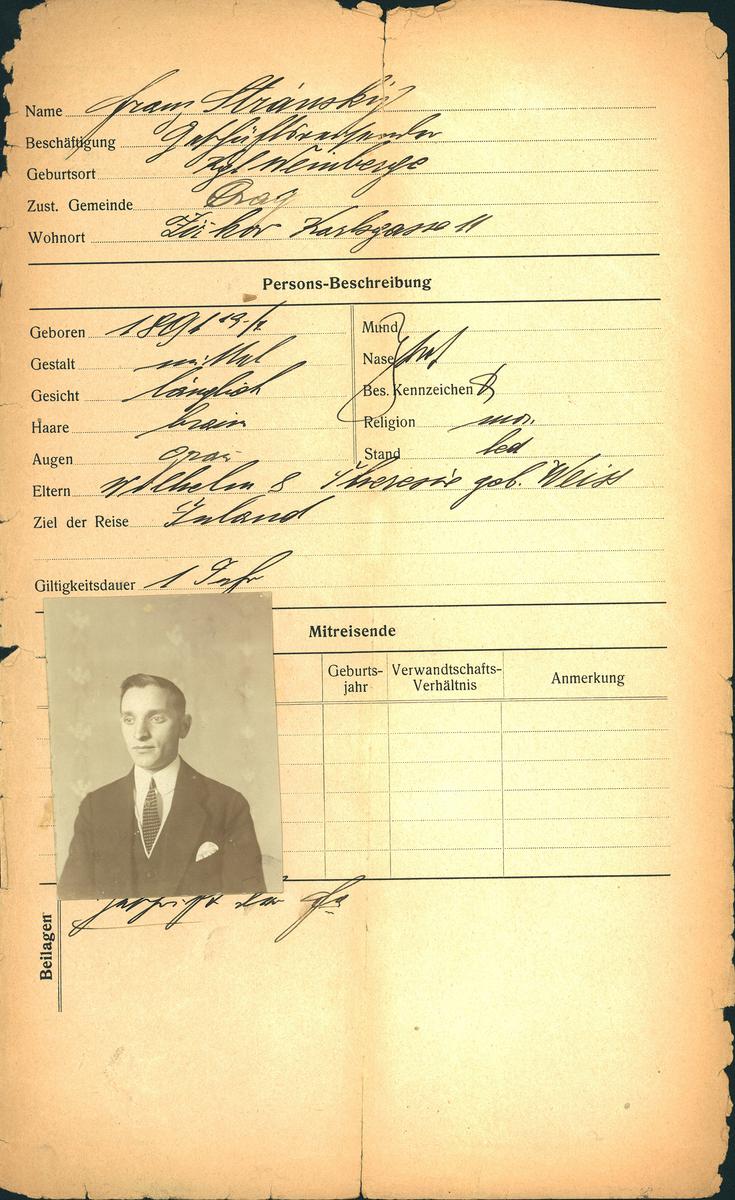 Name Franz Stránský
Beschäftigung Geschäftsreisender
Geburtsort Kgl Weinberge
Zust. Gemeinde Prag
Wohnort Karlsgasse 11
Persons-Beschreibung
Geboren 1891
Gestalt mittel
Gesicht länglich
Haare braun
Augen grau
Mund
Nase
Bes. Kennzeichen
Religion mos.
Stand led
Eltern Wilhelm & Theresie geb. Weiss
Ziel der Reise Inland
Giltigkeitsdauer 1 Jahr
Mitreisende
Geburts-
jahr
Verwandtschafts-
Verhältnis
Anmerkung
Beilagen